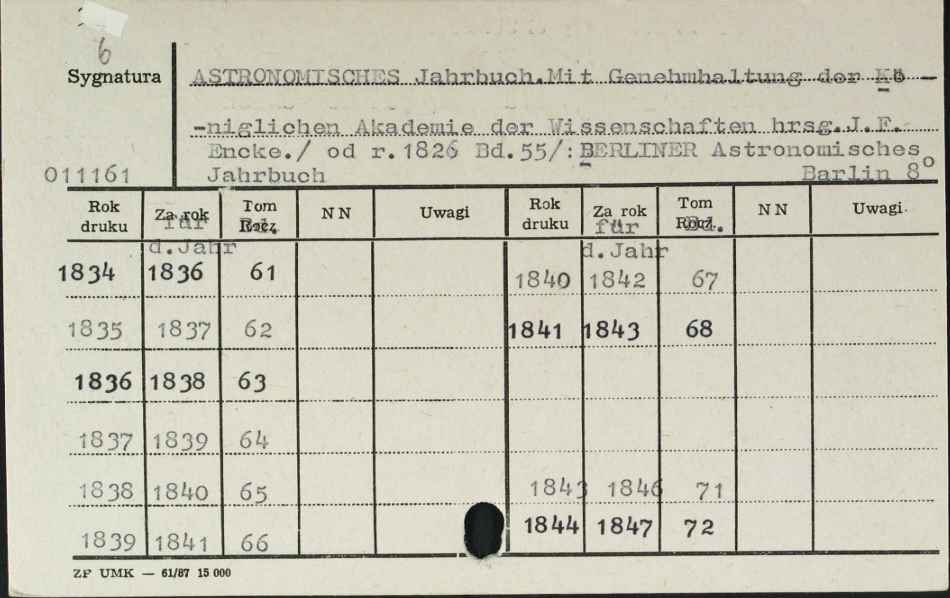 6
Sygnatura ASTRONOMISCHES Jahrbuch.Mit Genehmhaltung der Kö-
-niglichen Akademie der Wissenschaften hrsg.J.F.
Encke./ od r.1826 Bd.55/:BERLINER Astronomisches
011161 Jahrbuch Barlin 8°
Rok druku Za rok für d.Jahr Tom Rocz. Bd. NN Uwagi Rok druku Za rok für d.Jahr Tom Rocz. Bd. NN Uwagi
1834 1836 61 1840 1842 67
1835 1837 62 1841 1843 68
1836 1838 63
1837 1839 64
1838 1840 65 1843 1846 71
1839 1841 66 1844 1847 72
ZP UMK — 61/87 15 000